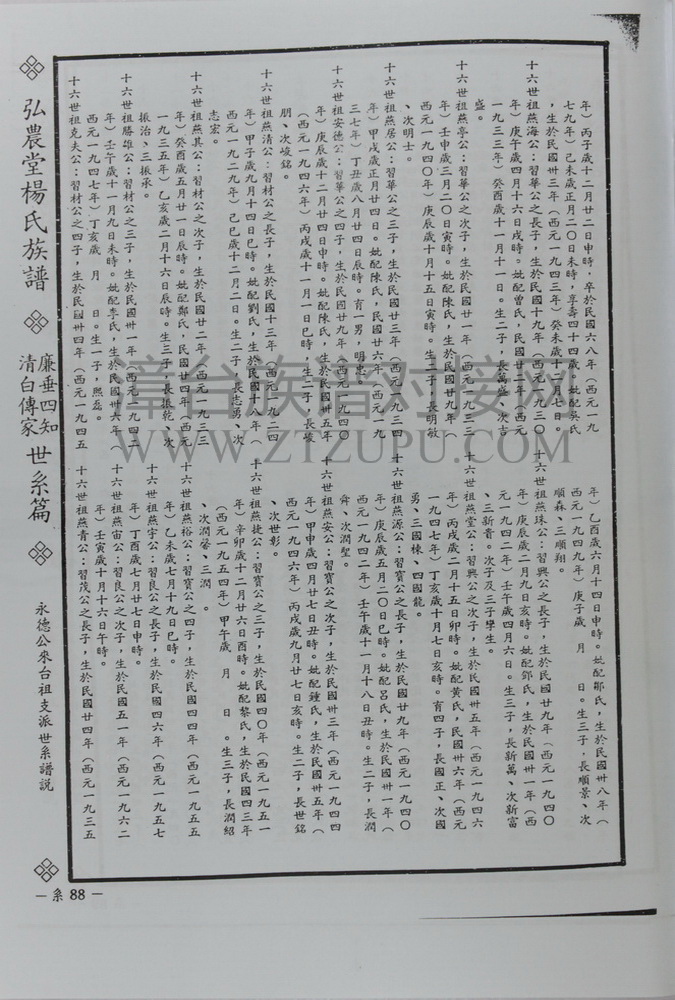 年）丙子歲十二月廿二日申時，卒於民國六八年（西元一九
七九年）己未歲正月二〇日未時，享壽四十四歲。妣配吳氏
，生於民國卅三年（西元一九四三年）癸未歲十月七日。
十六世祖燕海公：習華公之長子，生於民國十九年（西元一九三〇
年）庚午歲四月十六日戌時。妣配曾氏，民國廿二年（西元
一九三三年）癸酉歲十一月十一日。生二子，長萬盛、次吉
盛。
十六世祖燕亭公：習華公之次子，生於民國廿一年（西元一九三二
年）壬申歲三月二〇日寅時。妣配陳氏，生於民國廿九年（
西元一九四〇年）庚辰歲十月十五日寅時。生二子，長明敏
、次明士。
十六世祖燕居公：習華公之三子，生於民國廿三年（西元一九三四
年）甲戌歲正月廿四日。妣配陳氏，民國廿六年（西元一九
三七年）丁丑歲八月廿四日辰時。育一男，明忠。
十六世祖安德公：習華公之四子，生於民國廿九年（西元一九四〇
年）庚辰歲十二月廿四日申時。妣配陳氏，生於民國卅五年
（西元一九四六年）丙戌歲十一月一日巳時，生二子，長峻
朋、次峻銘。
十六世祖燕清公：習材公之長子，生於民國十三年（西元一九二四
年）甲子歲九月十四日巳時。妣配劉氏，生於民國十八年（
西元一九二九年）己巳歲十二月二日。生二子，長志勇、次
志宏。
十六世祖燕其公：習材公之次子，生於民國廿二年（西元一九三三
年）癸酉歲五月廿一日辰時。妣配鄭氏，民國廿四年（西元
一九三五年）乙亥歲二月十六日辰時。生三子，長振乾、次
振治、三振承。
十六世祖勝雄公：習材公之三子，生於民國卅一年（西元一九四二
年）壬午歲十一月九日未時。妣配李氏，生於民國卅六年（
西元一九四七年）丁亥歲　月　日。生一子，熙磊。
十六世祖克夫公：習材公之四子，生於民國卅四年（西元一九四五
年）乙酉歲六月十四日申時。妣配鄒氏，生於民國卅八年（
西元一九四九年）庚子歲　月　日。生三子，長順景、次
順森、三順翔。
十六世祖燕珠公：習興公之長子，生於民國廿九年（西元一九四〇
年）庚辰歲二月九日寅時。妣配邱氏，生於民國卅一年（西
元一九四二年）壬午歲四月六日。生三子，長新萬、次新富
、三新貴。次子及三子孿生。
十六世祖燕堂公：習興公之次子，生於民國卅五年（西元一九四六
年）丙戌歲二月十五日卯時。妣配黃氏，民國卅六年（西元
一九四七年）丁亥歲十月七日亥時。育四子，長國正、次國
勇、三國棟、四國龍。
十六世祖燕源公：習寶公之長子，生於民國廿九年（西元一九四〇
年）庚辰歲五月二〇日巳時。妣配呂氏，生於民國卅一年（
西元一九四二年）壬午歲十一月十八日丑時。生二子，長潤
舜、次潤聖。
十六世祖燕安公：習寶公之次子，生於民國卅三年（西元一九四四
年）甲申歲四月廿七日丑時。妣配鍾氏，生於民國卅五年（
西元一九四六年）丙戌歲九月廿七日亥時。生二子，長世銘
、次世彰。
十六世祖燕捷公：習寶公之三子，生於民國四〇年（西元一九五一
年）辛卯歲十二月廿六日酉時。妣配黎氏，生於民國四三年
（西元一九五四年）甲午歲　月　日。生三子，長潤紹
、次潤馨、三潤　。
十六世祖燕裕公：習寶公之四子，生於民國四四年（西元一九五五
年）乙未歲七月十九日巳時。
十六世祖燕宇公：習良公之長子，生於民國四六年（西元一九五七
年）丁酉歲七月廿七日申時。
十六世祖燕宙公：習良公之次子，生於民國五一年（西元一九六二
年）壬寅歲十月十六日午時。
十六世祖燕青公：習茂公之長子，生於民國廿四年（西元一九三五
弘農堂楊氏族譜
廉垂四知
清白傳家
世系篇
永德公來台祖支派世系譜說
－系 88－
漳台族谱对接网
WWW.ZTZUPU.COM